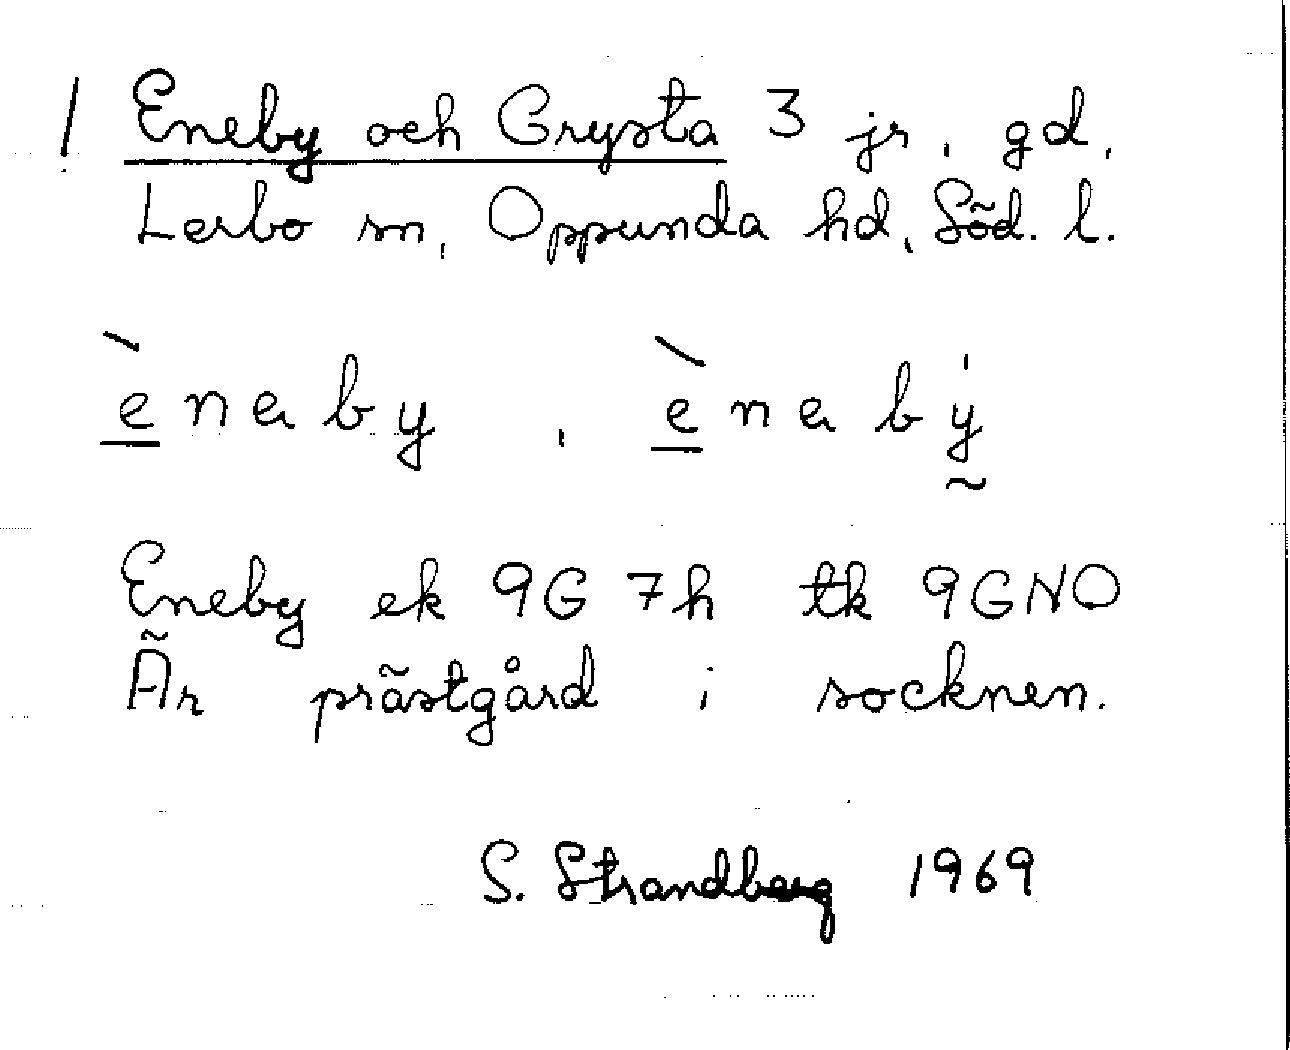 ! Eneby och Grysta 3 jr, gd,
Lerbo sn, Oppunda hd, Söd. l.
è̲ n ə b y , è̲ n ə b ý̰
Eneby ek 9G 7h tk 9GNO
Är prästgård i socknen.
S. Strandberg 1969